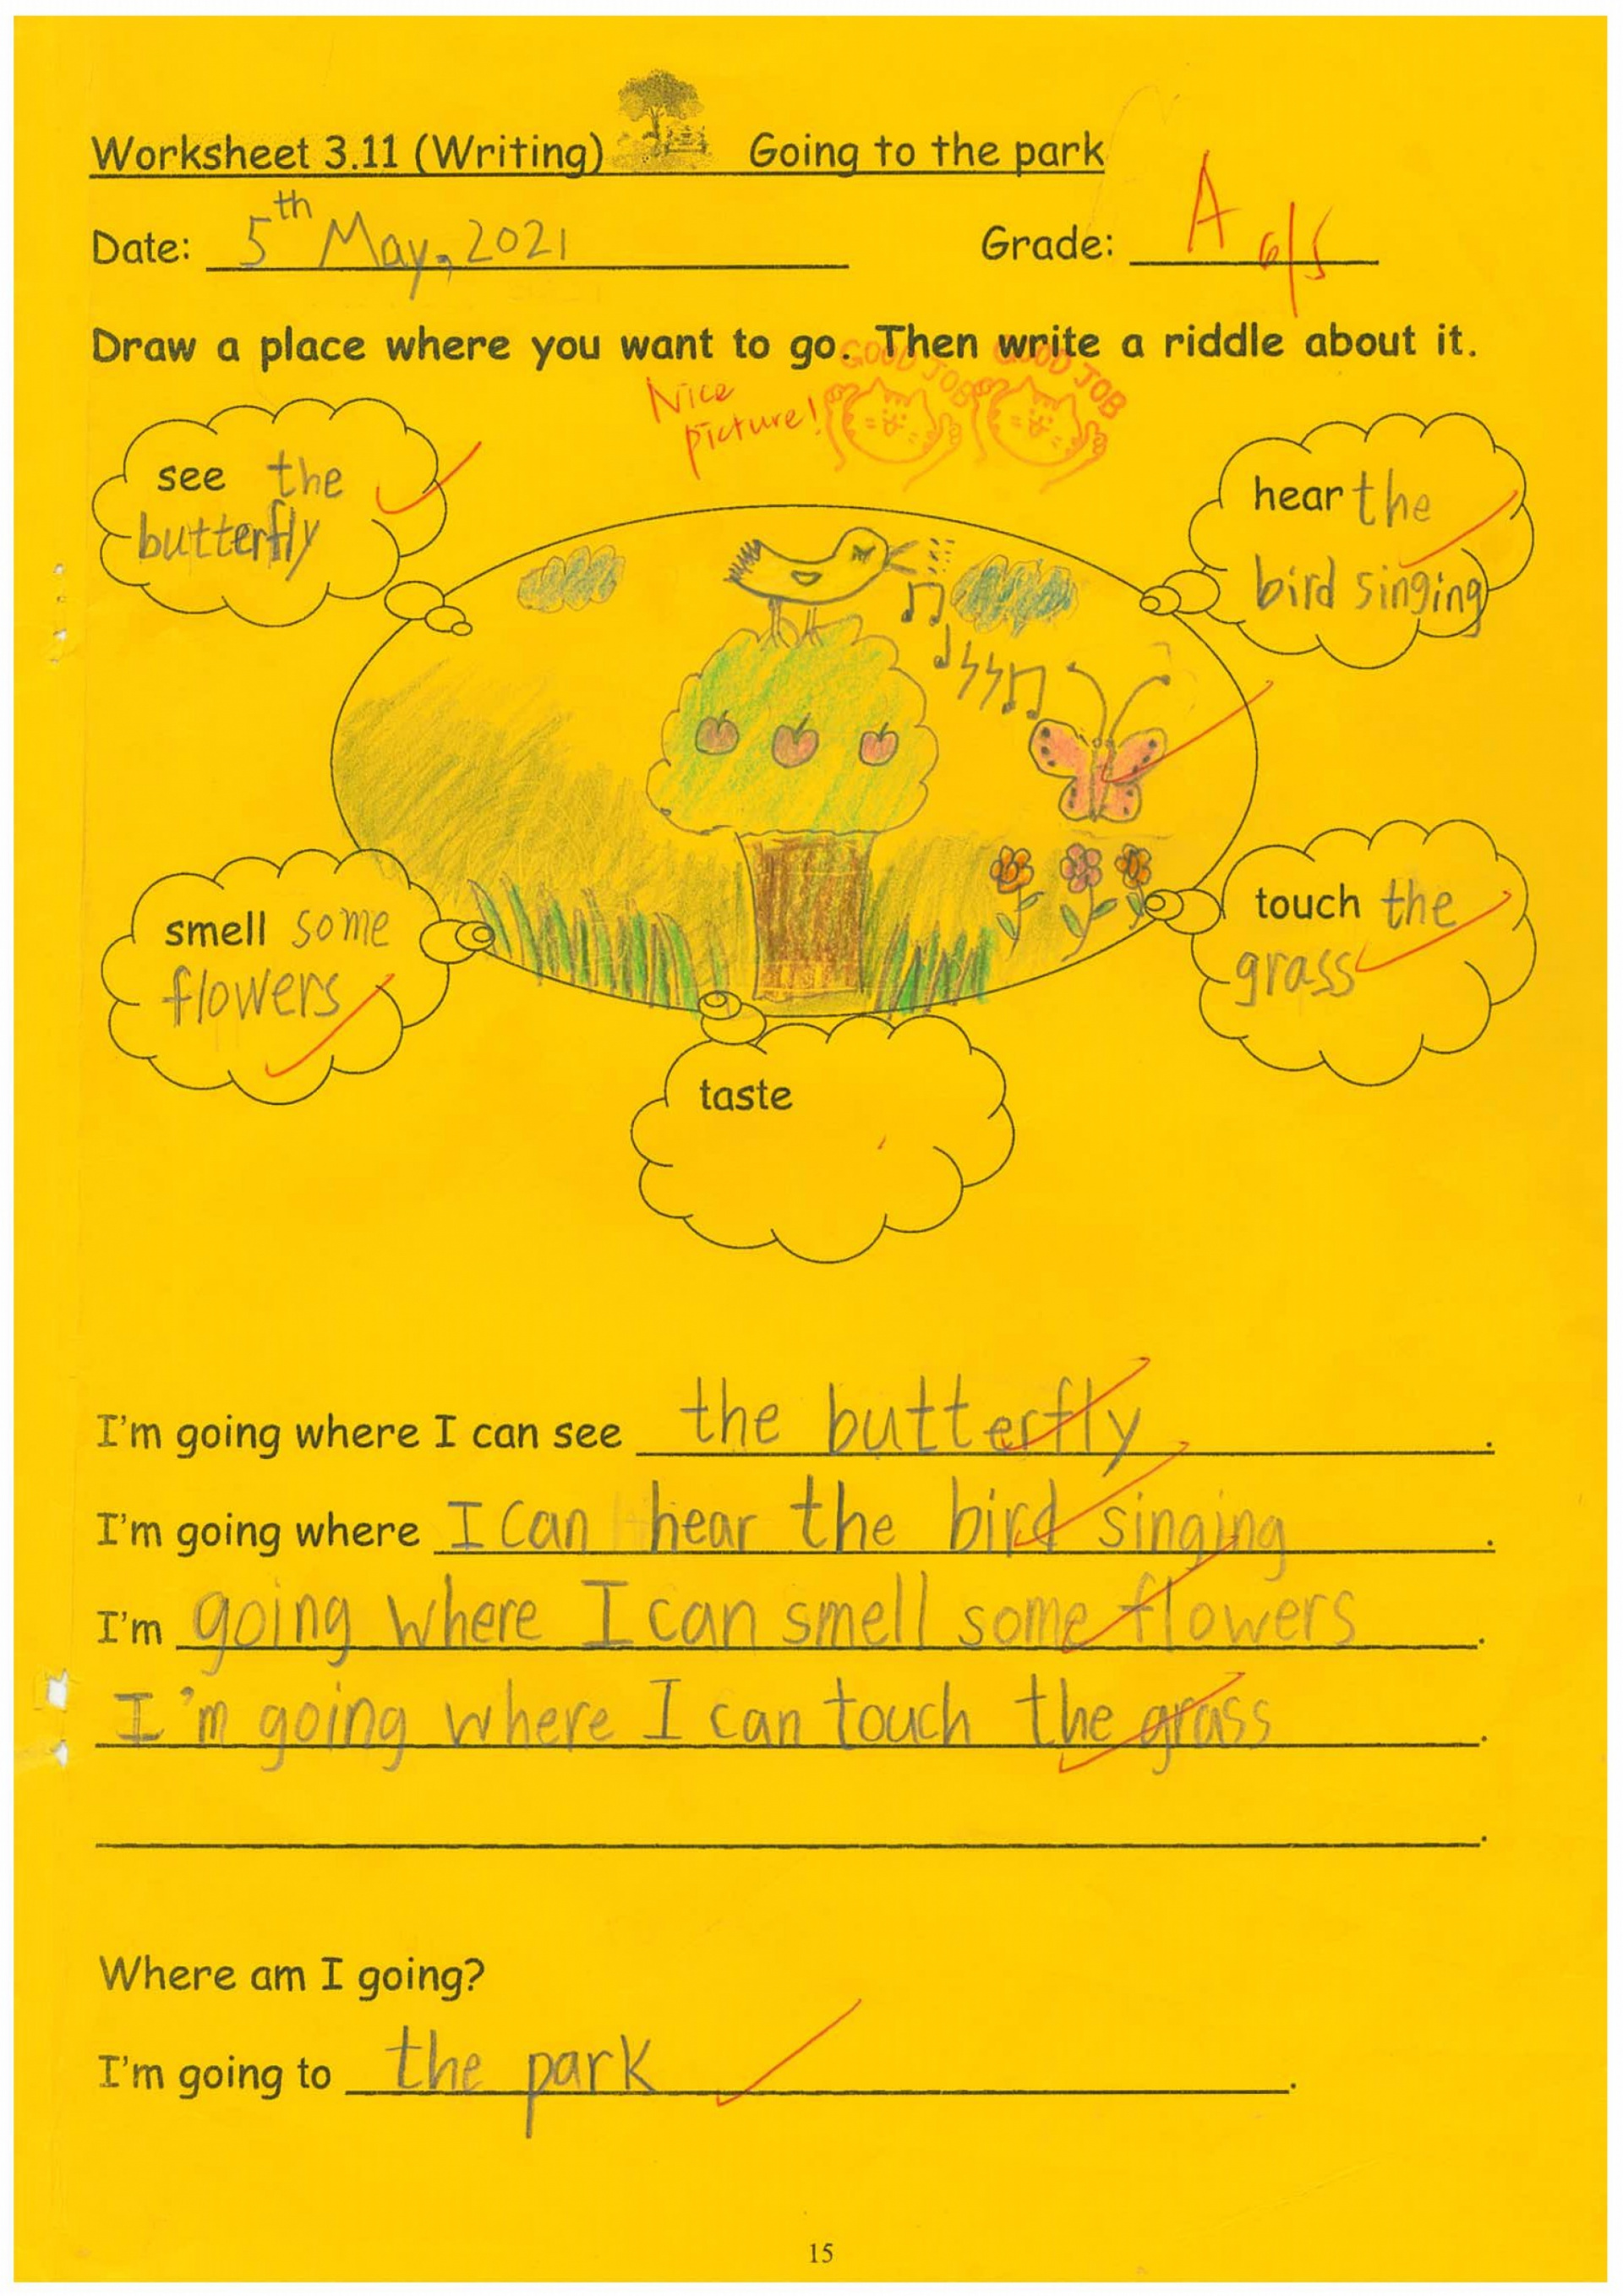 Worksheet 3.11 (Writing) Going to the park
Date: 5th May, 2021 Grade: A 6/5
Draw a place where you want to go. Then write a riddle about it.
Nice picture!
GOOD JOB GOOD JOB
see the
butterfly
hear the
bird singing
smell some
flowers
touch the
grass
taste
I'm going where I can see the butterfly.
I'm going where I can hear the bird singing.
I'm going where I can smell some flowers.
I'm going where I can touch the grass.
.
Where am I going?
I'm going to the park.
15